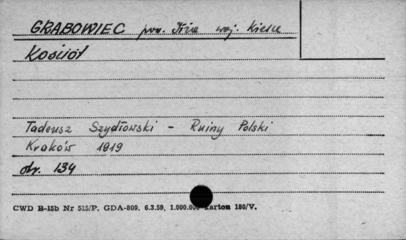 GRABOWIEC pow. Iłża woj. Kielce
Kościół
Tadeusz Szydłowski - Ruiny Polski
Kraków 1919
str. 134
CWD B-15b Nr 515/P. GDA-809. 6.3.59, 1.000.000 karton 180/V.